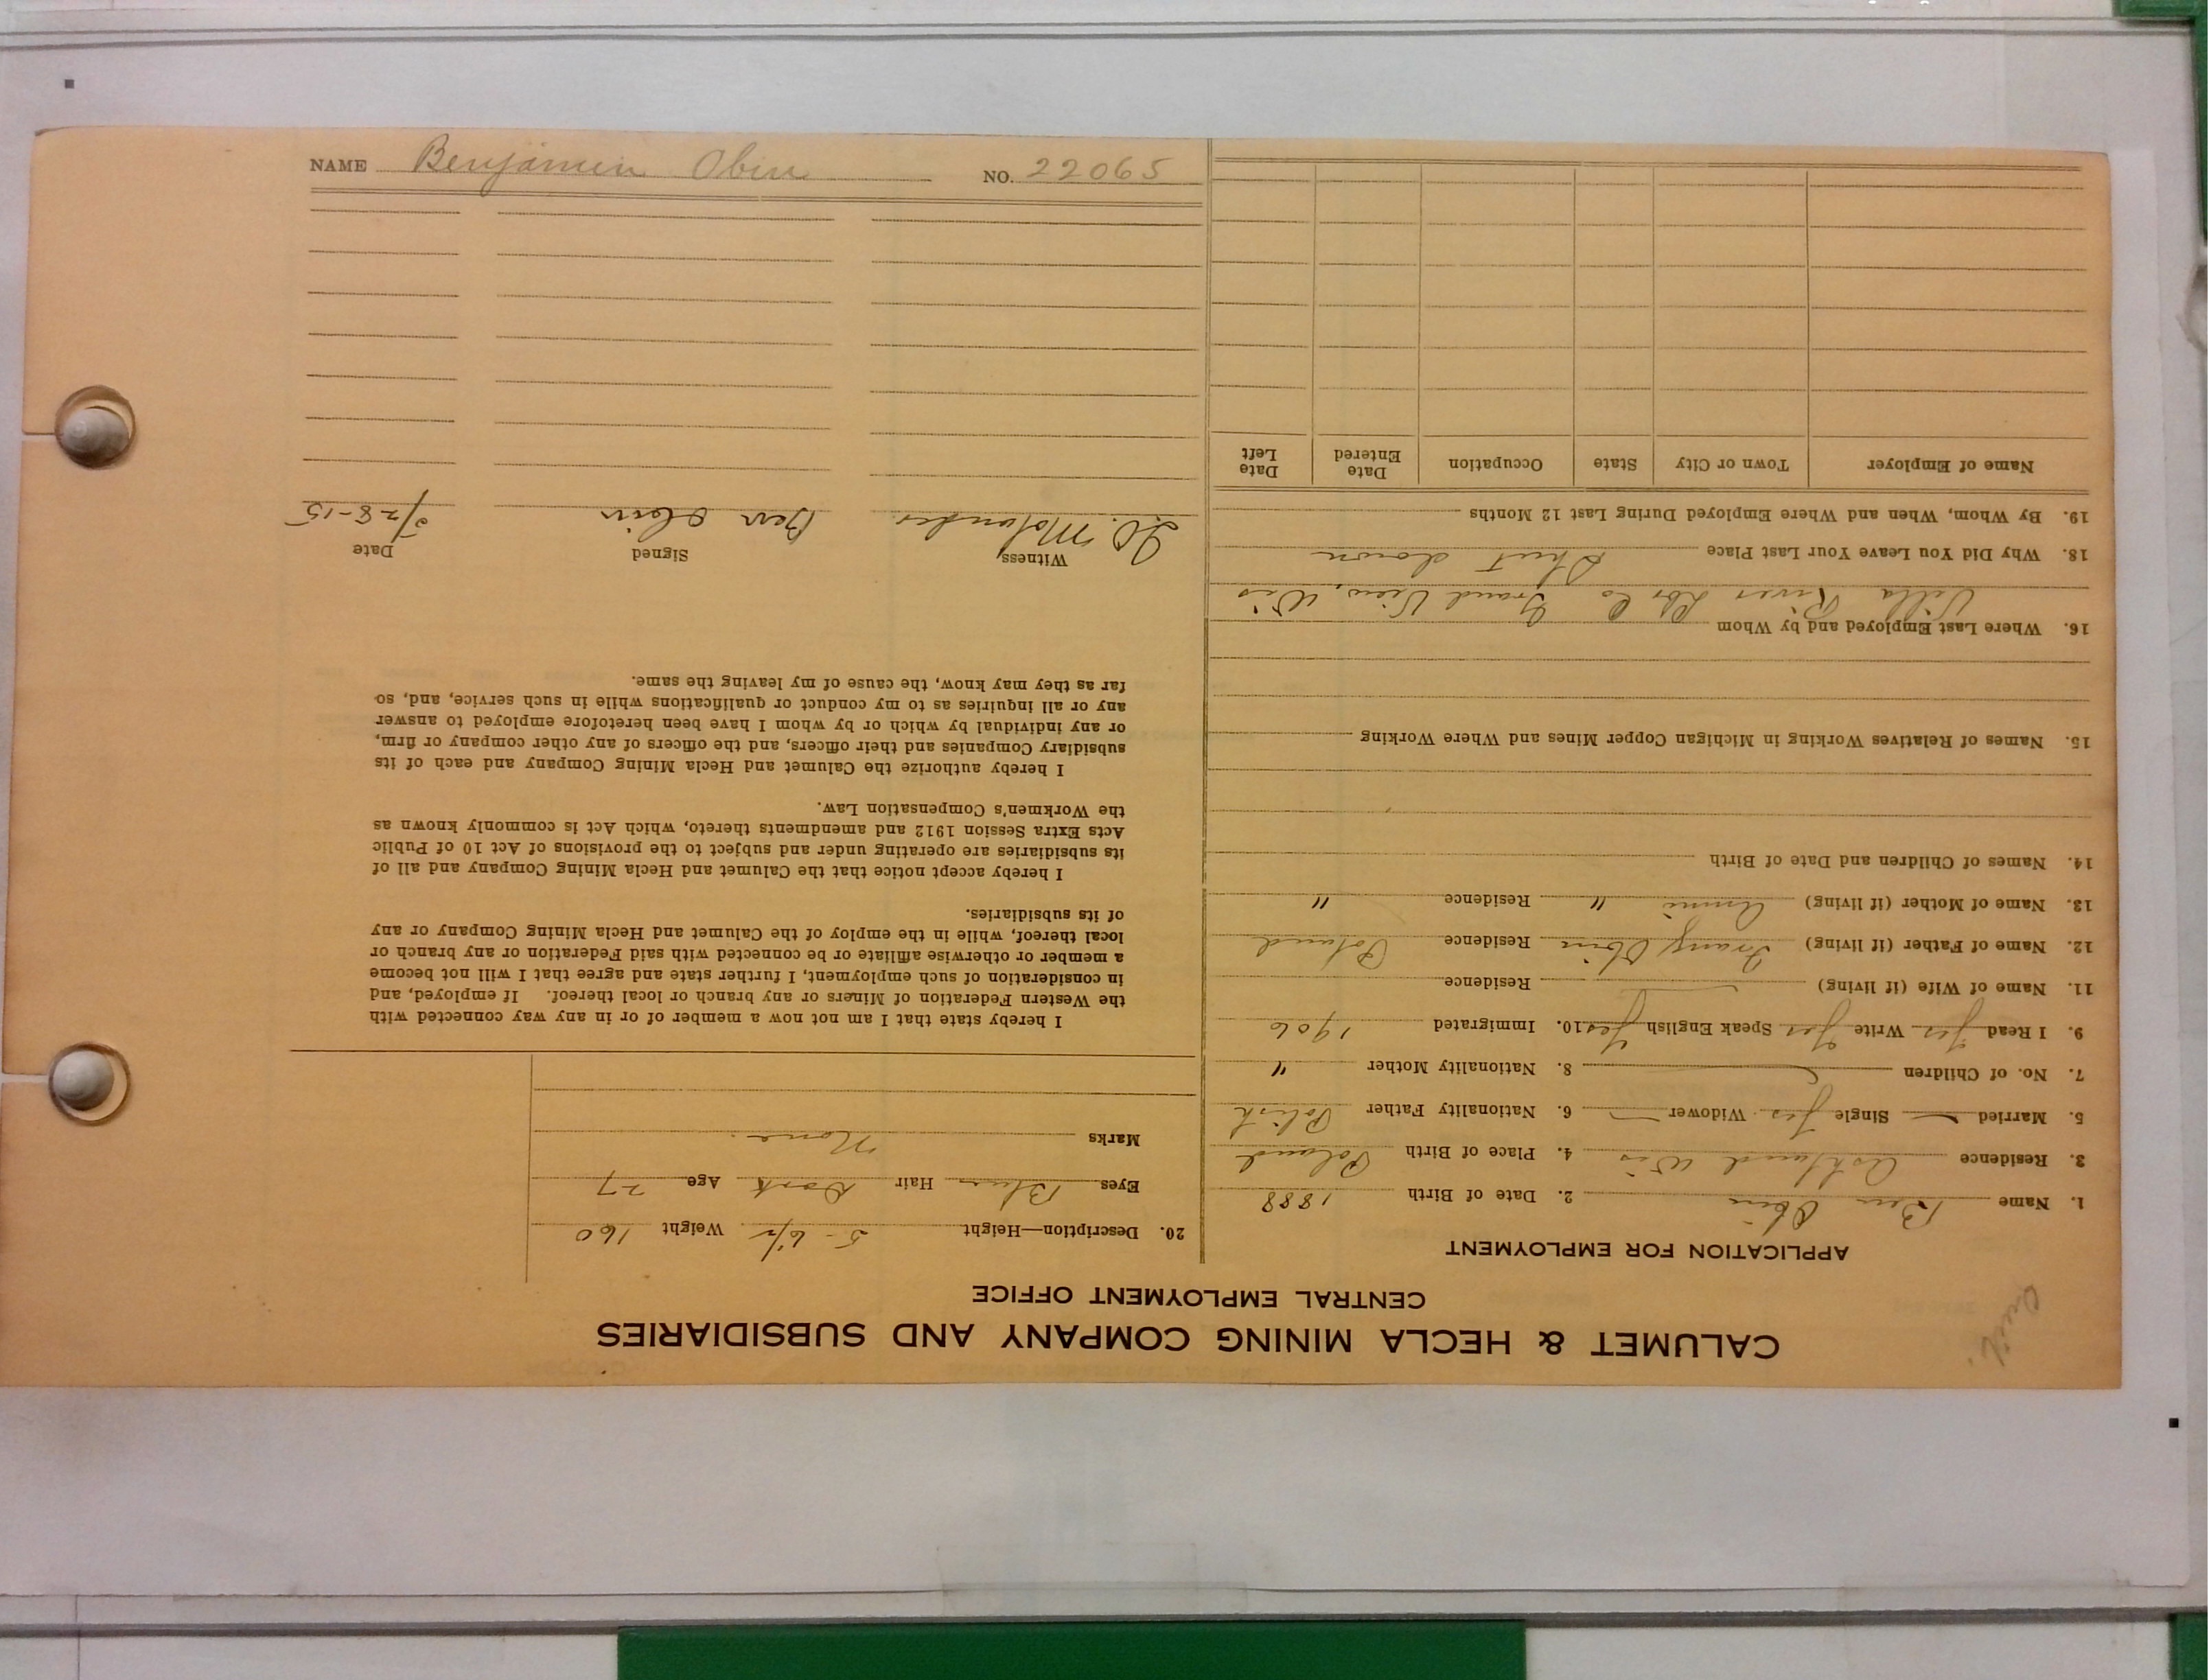 CALUMET & HECLA MINING COMPANY AND SUBSIDIARIES
CENTRAL EMPLOYMENT OFFICE
APPLICATION FOR EMPLOYMENT
1. Name Ben Obin 2. Date of Birth 1888
3. Residence Ashland Wis 4. Place of Birth Poland
5. Married — Single Yes Widower — 6. Nationality Father Polish
7. No. of Children — 8. Nationality Mother "
9. I Read Yes Write Yes Speak English Yes 10. Immigrated 1906
11. Name of Wife (if living) — Residence
12. Name of Father (if living) Obin Residence Poland
13. Name of Mother (if living) Annie " Residence "
14. Names of Children and Date of Birth
15. Names of Relatives Working in Michigan Copper Mines and Where Working
16. Where Last Employed and by Whom
River Lbr Co Grand View, Wis
18. Why Did You Leave Your Last Place Shut down
19. By Whom, When and Where Employed During Last 12 Months
Name of Employer Town or City State Occupation Date Entered Date Left
20. Description—Height 5-6 1/2 Weight 160
Eyes Blue Hair Dark Age 27
Marks None.
I hereby state that I am not now a member of or in any way connected with
the Western Federation of Miners or any branch or local thereof. If employed, and
in consideration of such employment, I further state and agree that I will not become
a member or otherwise affiliate or be connected with said Federation or any branch or
local thereof, while in the employ of the Calumet and Hecla Mining Company or any
of its subsidiaries.
I hereby accept notice that the Calumet and Hecla Mining Company and all of
its subsidiaries are operating under and subject to the provisions of Act 10 of Public
Acts Extra Session 1912 and amendments thereto, which Act is commonly known as
the Workmen's Compensation Law.
I hereby authorize the Calumet and Hecla Mining Company and each of its
subsidiary Companies and their officers, and the officers of any other company or firm,
or any individual by which or by whom I have been heretofore employed to answer
any or all inquiries as to my conduct or qualifications while in such service, and, so
far as they may know, the cause of my leaving the same.
Witness Signed Date
Molander Ben Obin 28-15
NAME Benjamin Obin NO. 22065